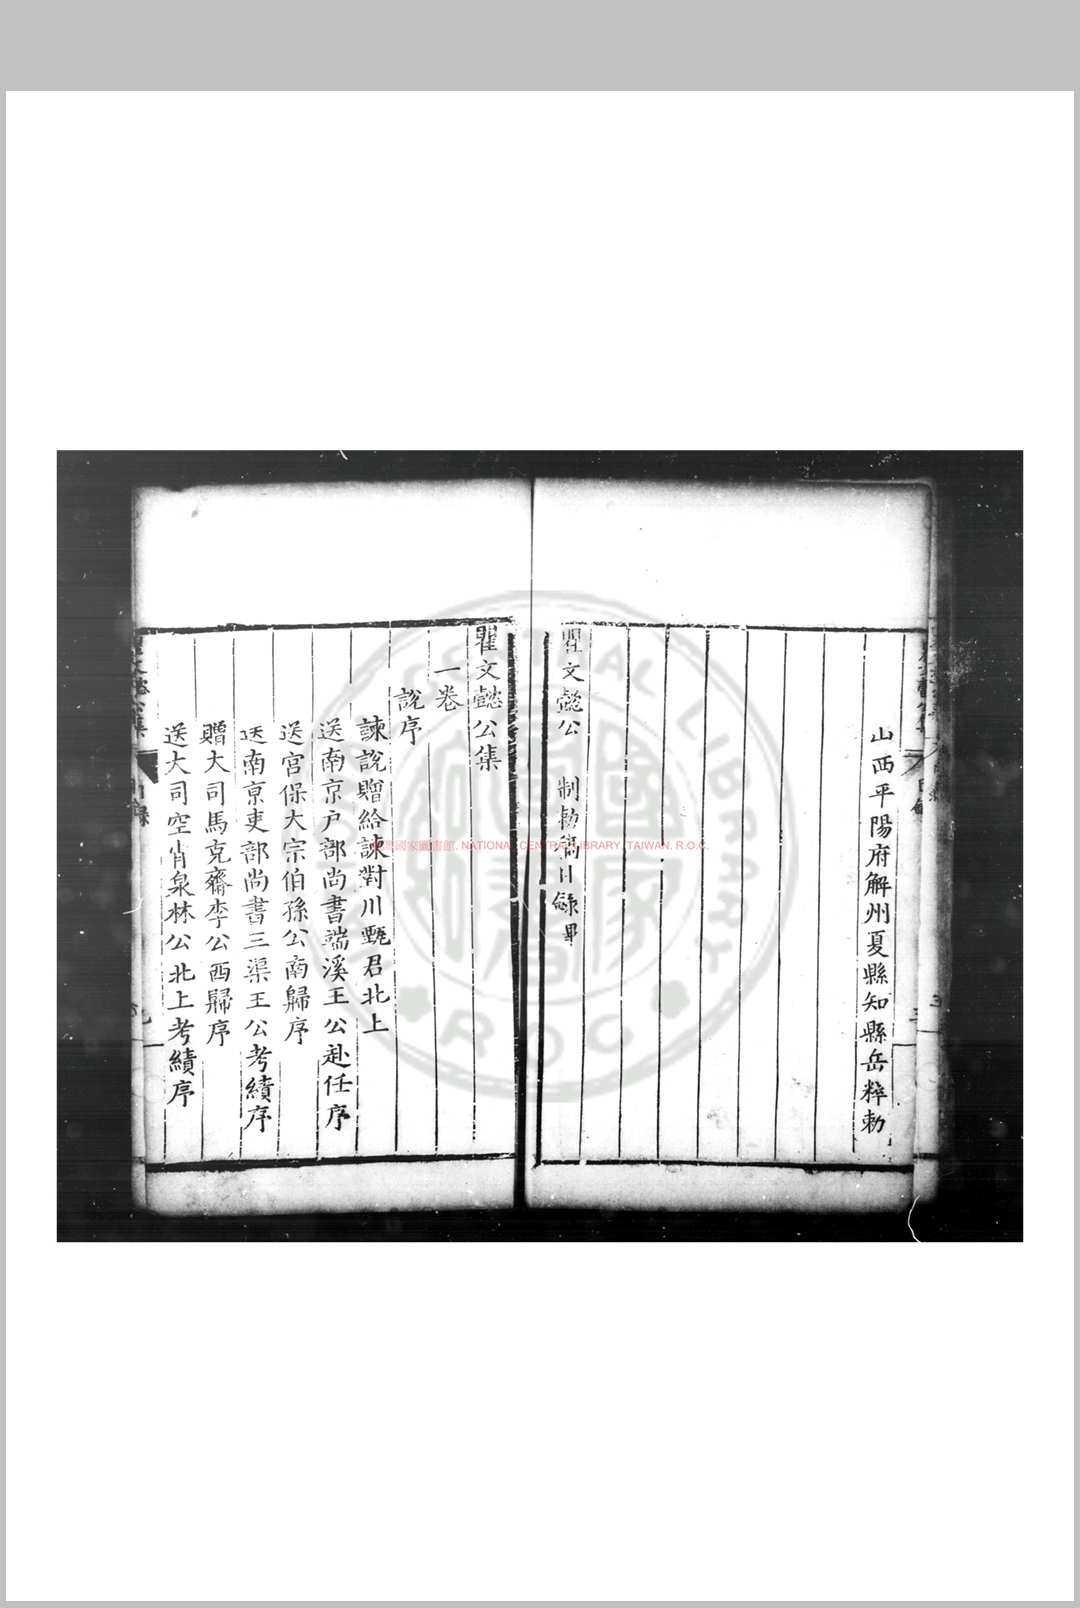 山西平陽府解州夏縣知縣岳粹勅
瞿文懿公 制勅稿目錄畢
瞿文懿公集
一卷
說序
諫說贈給諫對川甄君北上
送南京戶部尚書端溪王公赴任序
送宮保大宗伯孫公南歸序
送南京吏部尚書三渠王公考績序
贈大司馬克齋李公西歸序
送大司空肖泉林公北上考績序
國家圖書館, NATIONAL CENTRAL LIBRARY, TAIWAN, R.O.C.
CENTRAL LIBRARY
R.O.C